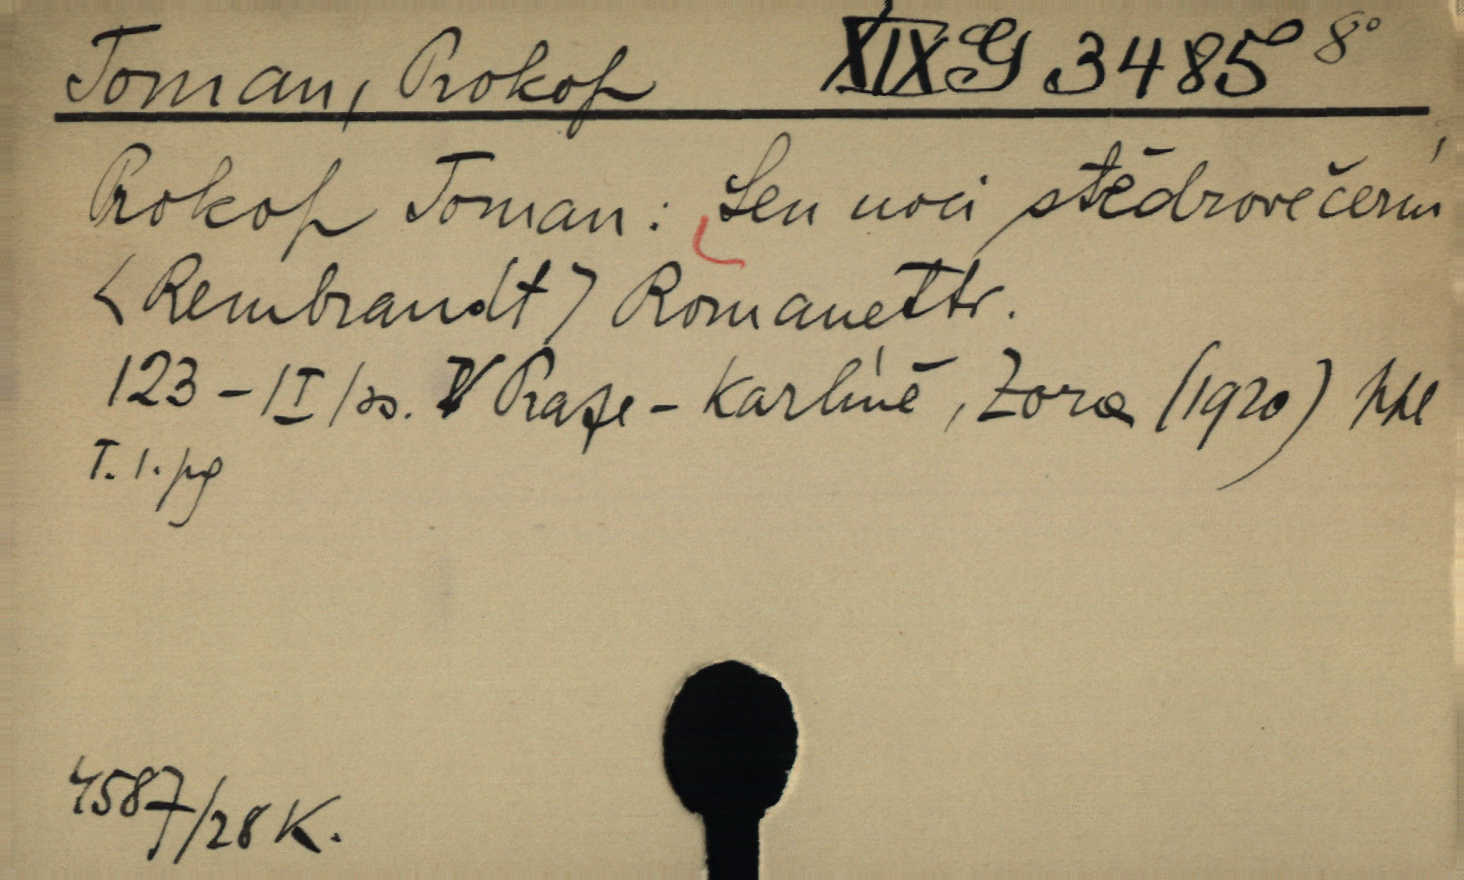 Toman, Prokop XIX G 3485 8°
Prokop Toman: Sen noci štědrovečerní
<Rembrandt> Romanetto.
123 - |I| s. V Praze - Karlíně, Zora (1920)
T. 1. pg
4587/28 K.